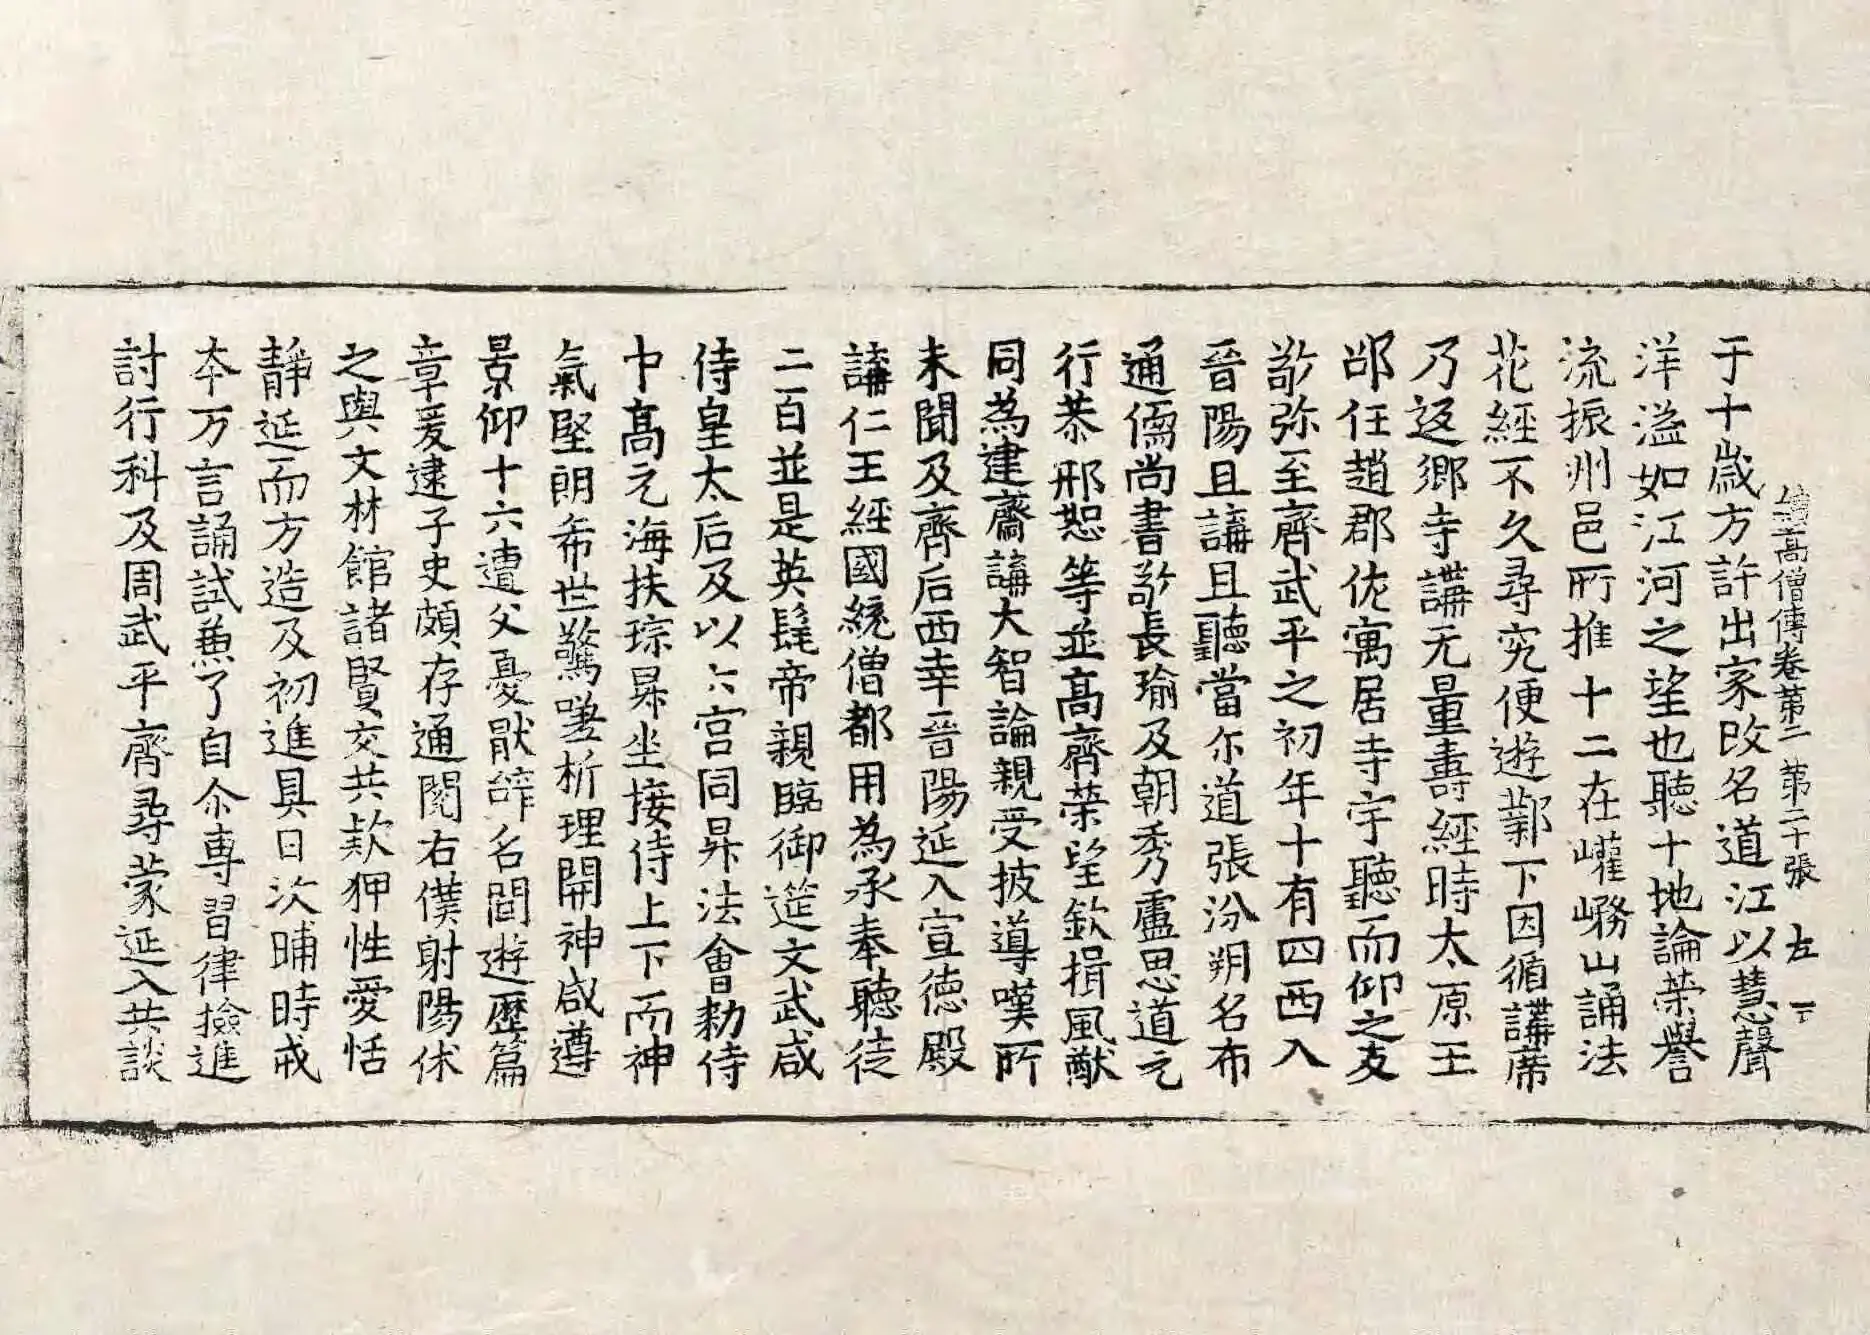 續高僧傳卷第二 第二十張 左
于十歲方許出家改名道江以慧聲
洋溢如江河之望也聽十地論榮譽
流振州邑所推十二在巏嵍山誦法
花經不久尋究便遊鄴下因循講席
乃返鄉寺講无量壽經時太原王
邵任趙郡佐寓居寺宇聽而仰之友
敬弥至齊武平之初年十有四西入
晉陽且講且聽當尔道張汾朔名布
通儒尚書敬長瑜及朝秀盧思道元
行恭邢恕等並高齊榮望欽揖風猷
同為建齋講大智論親受披導嘆所
未聞及齊后西幸晉陽延入宣德殿
講仁王經國統僧都用為承奉聽徒
二百並是英髦帝親臨御筵文武咸
侍皇太后及以六宮同昇法會勑侍
中高元海扶琮昇坐接侍上下而神
氣堅朗希世驚嗟析理開神咸遵
景仰十六遭父憂猒辝名聞遊歷篇
章爰逮子史頗存通閱右僕射陽休
之與文林館諸賢交共款狎性愛恬
靜延而方造及初進具日次晡時戒
本万言誦試兼了自尒專習律撿進
討行科及周武平齊尋蒙延入共談